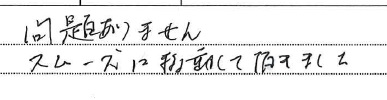 問題ありません
スムーズに移動して頂きました